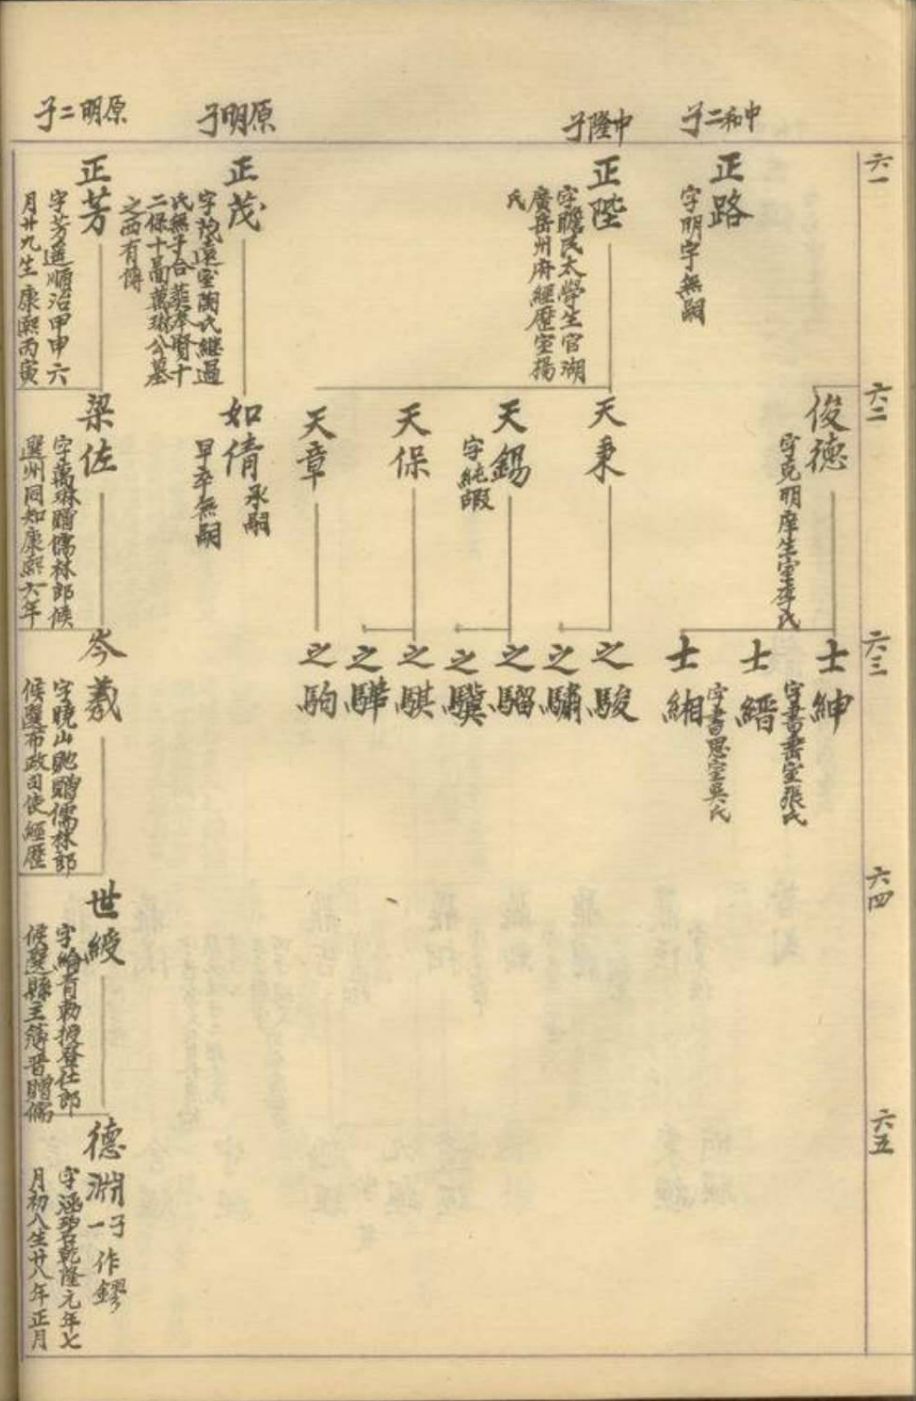 六一
六二
六三
六四
六五
中和二子
正路
字明宇無嗣
中隆子
正陞
字瞻民太學生官湖
廣岳州府經歷室揚
氏
原明子
正茂
字琬遠室陶氏繼過
氏無子合葬奉賢十
二保十啚萬琳公墓
之西有傳
原明二子
正芳
字芳遠順治甲申六
月廿九生康熙丙寅
俊德
字克明庠生室李氏
天秉
天錫
字純嘏
天保
天章
如倩
承嗣
早卒無嗣
梁佐
字萬琳贈儒林郎候
選州同知康熙六年
士紳
字書紊室張氏
士縉
字書思室吳氏
士緗
之駿
之驌
之騮
之驥
之騏
之驊
之駒
岑羲
字曉山貤贈儒林郎
候選布政司使經歷
世綬
字綸青勅授登仕郎
候選縣主簿晋贈儒
德淵
子一作鏐
字涵碧乾隆元年七
月初八生廿八年正月